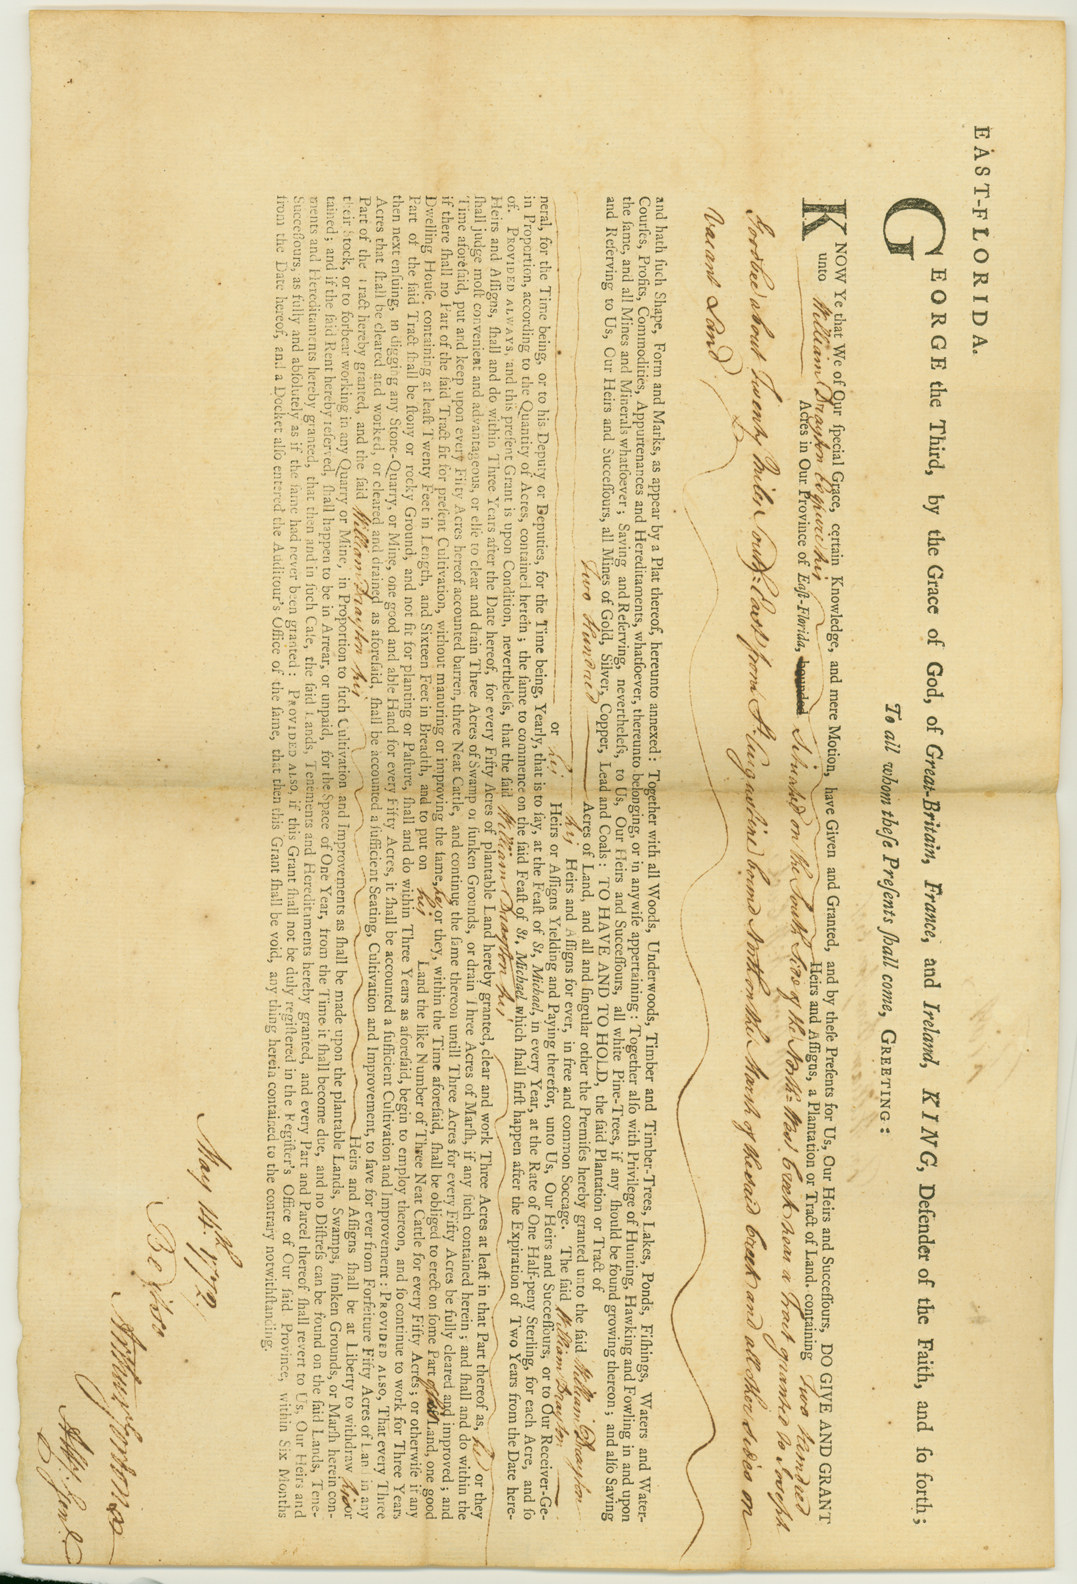 EAST-FLORIDA.
GEORGE the Third, by the Grace of God, of Great-Britain, France, and Ireland, KING, Defender of the Faith, and ſo forth;
To all whom theſe Preſents ſhall come, GREETING:
KNOW Ye that We of Our ſpecial Grace, certain Knowledge, and mere Motion, have Given and Granted, and by theſe Preſents for Us, Our Heirs and Succeſſours, DO GIVE AND GRANT
unto William Drayton Esquire his Heirs and Aſſigns, a Plantation or Tract of Land. containing Two hundred
Acres in Our Province of Eaſt-Florida, bounded Situated on the South Side of the North-West Creek near a Tract granted to Joseph
about Twenty Miles South-East from St Augustine bound North on the Marsh of the said Creek and all other sides on
Vacant Land
and hath ſuch Shape, Form and Marks, as appear by a Plat thereof, hereunto annexed: Together with all Woods, Underwoods, Timber and Timber-Trees, Lakes, Ponds, Fiſhings, Waters and Water-
Courſes, Profits, Commodities, Appurtenances and Hereditaments, whatſoever, thereunto belonging, or in anywiſe appertaining: Together alſo with Privilege of Hunting, Hawking and Fowling in and upon
the ſame, and all Mines and Minerals whatſoever; Saving and Reſerving, nevertheleſs, to Us, Our Heirs and Succeſſours, all white Pine-Trees, if any ſhould be found growing thereon; and alſo Saving
and Reſerving to Us, Our Heirs and Succeſſours, all Mines of Gold, Silver, Copper, Lead and Coals: TO HAVE AND TO HOLD, the ſaid Plantation or Tract of
Two Hundred Acres of Land, and all and ſingular other the Premiſes hereby granted unto the ſaid William Drayton
his Heirs and Aſſigns for ever, in free and common Soccage. The ſaid William Drayton
or his Heirs or Aſſigns Yielding and Paying therefor, unto Us, Our Heirs and Succeſſours, or to Our Receiver-Ge-
neral, for the Time being, or to his Deputy or Deputies, for the Time being, Yearly, that is to ſay, at the Feaſt of St. Michael, in every Year, at the Rate of One Half-peny Sterling, for each Acre, and ſo
in Proportion, according to the Quantity of Acres, contained herein; the ſame to commence on the ſaid Feaſt of St. Michael which ſhall firſt happen after the Expiration of Two Years from the Date here-
of. PROVIDED ALWAYS, and this preſent Grant is upon Condition, nevertheleſs, that the ſaid William Drayton his
Heirs and Aſſigns, ſhall and do within Three Years after the Date hereof, for every Fifty Acres of plantable Land hereby granted, clear and work Three Acres at leaſt in that Part thereof as, he or they
ſhall judge moſt convenient and advantageous, or elſe to clear and drain Three Acres of Swamp or ſunken Grounds, or drain Three Acres of Marſh, if any ſuch contained herein; and ſhall and do within the
Time aforeſaid, put and keep upon every Fifty Acres hereof accounted barren, three Neat Cattle, and continue the ſame thereon untill Three Acres for every Fifty Acres be fully cleared and improved; and
if there ſhall no Part of the ſaid Tract fit for preſent Cultivation, without manuring or improving the ſame, he or they, within the Time aforeſaid, ſhall be obliged to erect on ſome Part of his Land, one good
Dwelling Houſe, containing at leaſt Twenty Feet in Length, and Sixteen Feet in Breadth, and to put on his Land the like Number of Three Neat Cattle for every Fifty Acres; or otherwiſe if any
Part of the ſaid Tract ſhall be ſtony or rocky Ground, and not fit for planting or Paſture, ſhall and do within Three Years as aforeſaid, begin to employ thereon, and ſo continue to work for Three Years
then next enſuing, in digging any Stone-Quarry, or Mine, one good and able Hand for every Fifty Acres, it ſhall be accounted a ſufficient Cultivation and Improvement: PROVIDED ALSO, That every Three
Acres that ſhall be cleared and worked, or cleared and drained as aforeſaid, ſhall be accounted a ſufficient Seating, Cultivation and Improvement, to ſave for ever from Forfeiture Fifty Acres of Land in any
Part of the Tract hereby granted, and the ſaid William Drayton his Heirs and Aſſigns ſhall be at Liberty to withdraw his or
their Stock, or to forbear working in any Quarry or Mine, in Proportion to ſuch Cultivation and Improvements as ſhall be made upon the plantable Lands, Swamps, ſunken Grounds, or Marſh herein con-
tained; and if the ſaid Rent hereby reſerved, ſhall happen to be in Arrear, or unpaid, for the Space of One Year, from the Time it ſhall become due, and no Diſtreſs can be found on the ſaid Lands, Tene-
ments and Hereditaments hereby granted, that then and in ſuch Caſe, the ſaid Lands, Tenements and Hereditaments hereby granted, and every Part and Parcel thereof ſhall revert to Us, Our Heirs and
Succeſſours, as fully and abſolutely as if the ſame had never been granted: PROVIDED ALSO, if this Grant ſhall not be duly regiſtered in the Regiſter's Office of Our ſaid Province, within Six Months
from the Date hereof, and a Docket alſo entered the Auditour's Office of the ſame, that then this Grant ſhall be void, any thing herein contained to the contrary notwithſtanding.
May 14th 1772.
Arthur Gordon
Atty: Genl